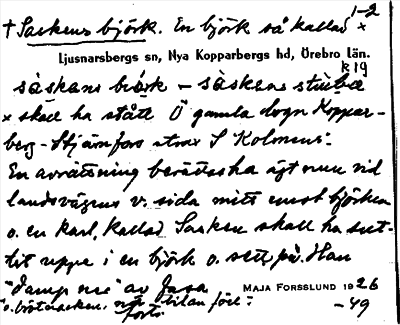 † Saskens björk. En björk så kallad 1-2
Ljusnarsbergs sn, Nya Kopparbergs hd, Örebro län.
R 19
såskens björk – såskens
× skall ha stått Ö gamla vägen Koppar-
berg - Stjärnfors strax S Kolmens.
En avrättning berättas ha ägt rum vid
landsvägens v. sida mitt emot björken
o. en karl, kallad Sasken skall ha sut-
tit uppe i en björk o. sett på. Han
"damp ner" av
MAJA FORSSLUND 1926
–49